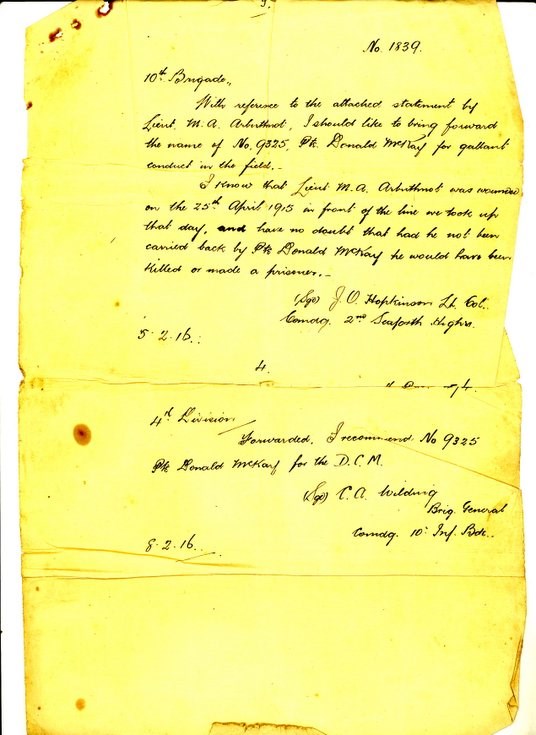 3.
No. 1839.
10th Brigade.,
With reference to the attached statement by
Lieut. M.A. Arbuthnot, I should like to bring forward
the name of No. 9325, Pte Donald McKay for gallant
conduct in the field.-
I know that Lieut M.A. Arbuthnot was wounded
on the 25th April 1915 in front of the line we took up
that day, and have no doubt that had he not been
carried back by Pte Donald McKay he would have been
killed or made a prisoner.-
(Sgd) J.O. Hopkinson Lt. Col.
Comdg. 2nd Seaforth Highrs.
5.2.16.
4.
4th Division
Forwarded. I recommend No 9325
Pte Donald McKay for the D.C.M.
(Sgd) C.A. Wilding
Brig. General
Comdg. 10th Inf. Bde..
8.2.16.